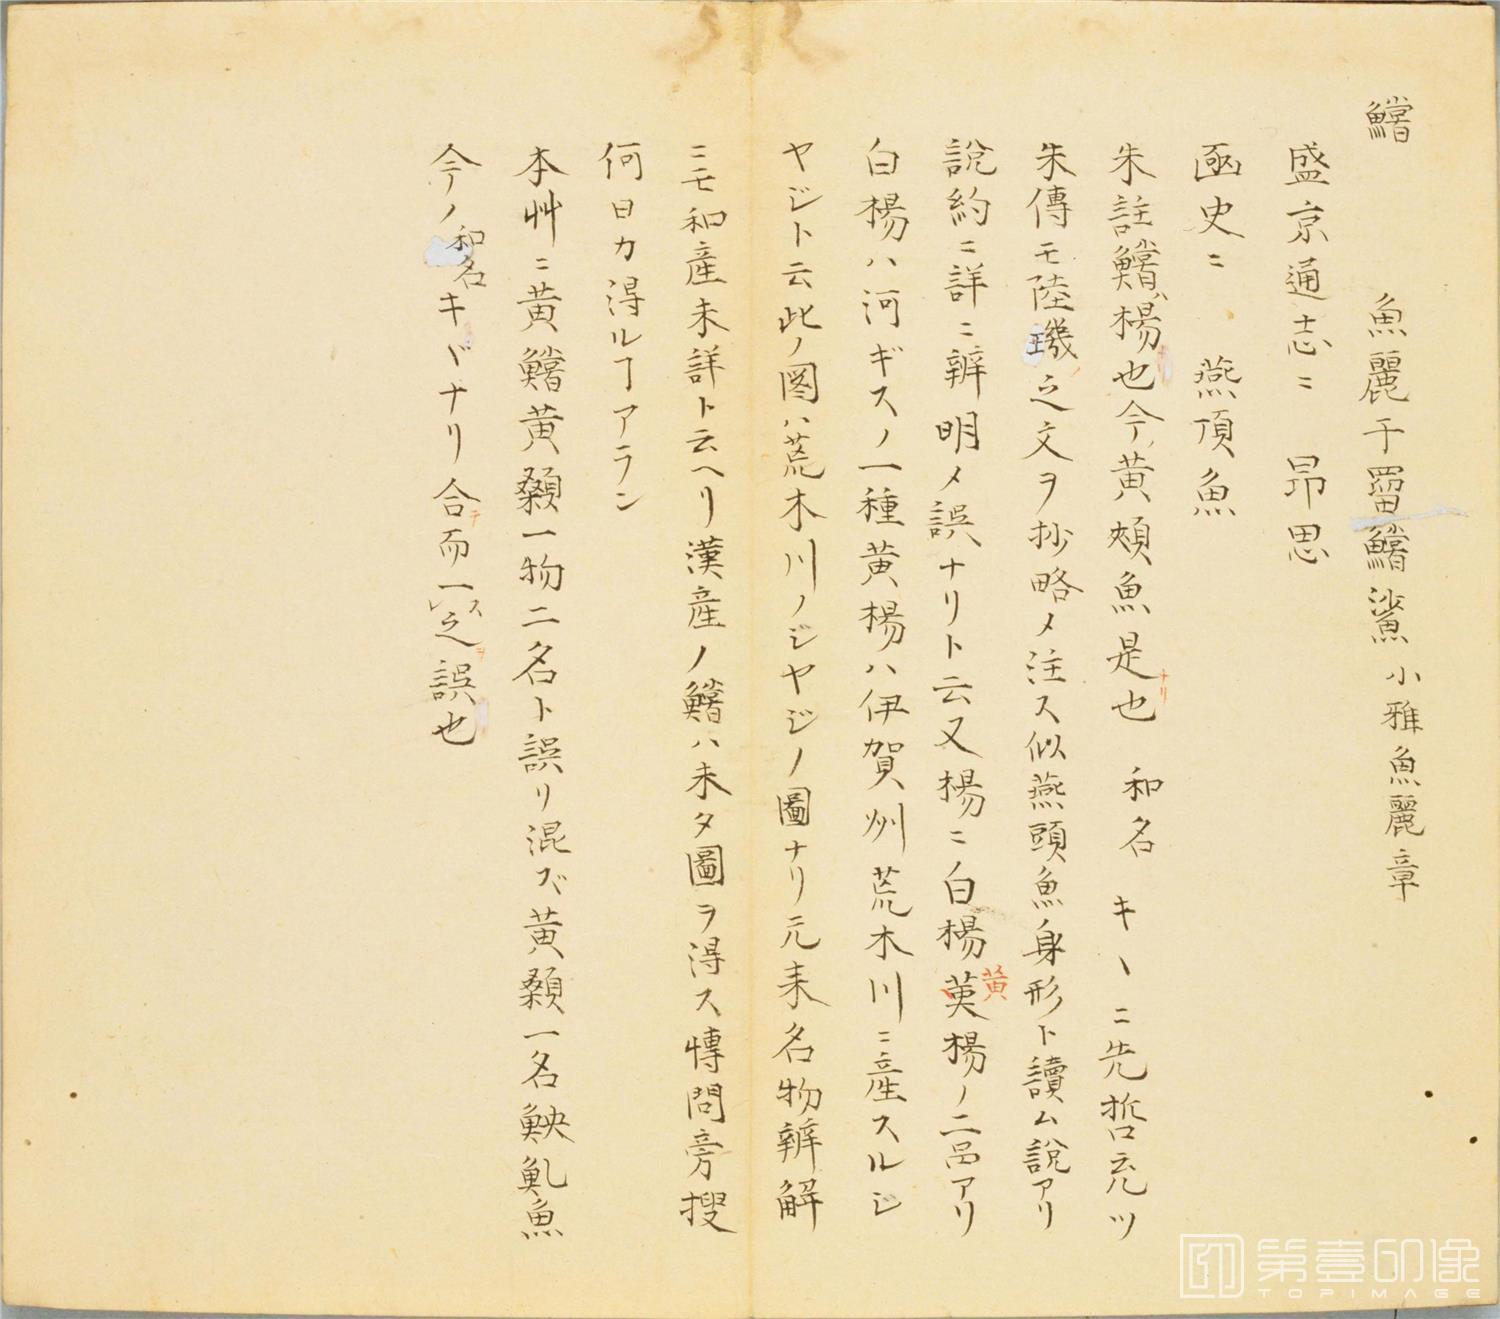 鱨
魚麗于罶鱨鯊 小雅魚麗章
盛京通志ニ 昂思
函史ニ 燕頂魚
朱註鱨ハ楊也今ノ黄頰魚是也 和名 キヽニ先哲充ツ
朱傳モ陸璣之文ヲ抄略メ注ス似燕頭魚身形ト讀ム說アリ
說約ニ詳ニ辨明メ誤ナリト云又楊ニ白楊黄楊ノ二品アリ
白楊ハ河ギスノ一種黄楊ハ伊賀州荒木川ニ産スルジ
ヤジト云此ノ圖ハ荒木川ノジヤジノ圖ナリ元来名物辨解
ニモ和産未詳ト云ヘリ漢産ノ鱨ハ未タ圖ヲ得ス博問旁搜
何日カ得ルヿアラン
本艸ニ黄鱨黄顙一物二名ト誤リ混ズ黄顙一名鉠魤魚
今ノ和名キヾナリ合テ而一ニスレ之ヲ誤也
第壹印像
TOPIMAGE